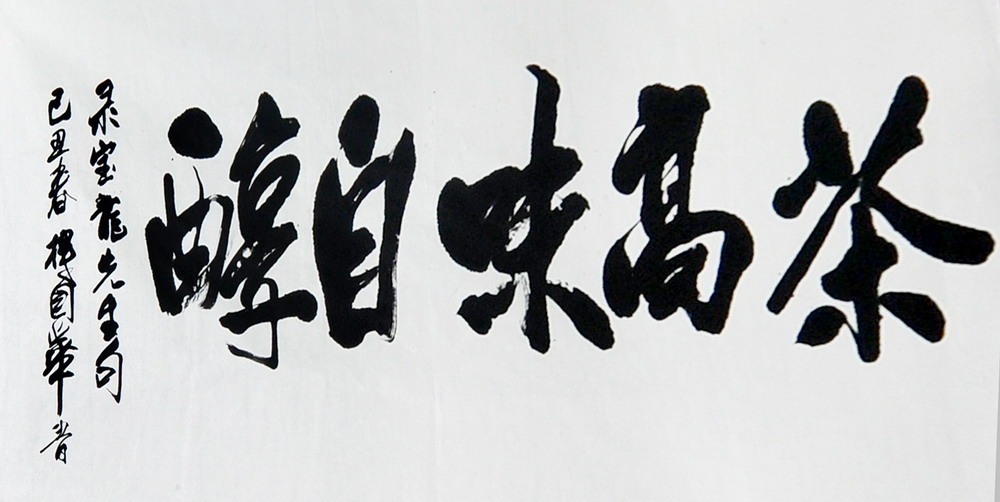 茶高味自醇
录宝龙先生句
己丑春 杨国华 书